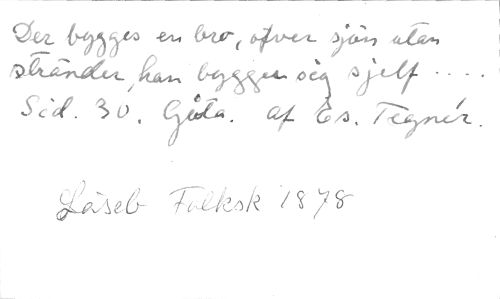 Der bygges en bro, öfver sjön utan
stränder, han bygger sig sjelf ....
Sid. 30. Gåta. af Es. Tegnér.
Läseb Folksk 1878